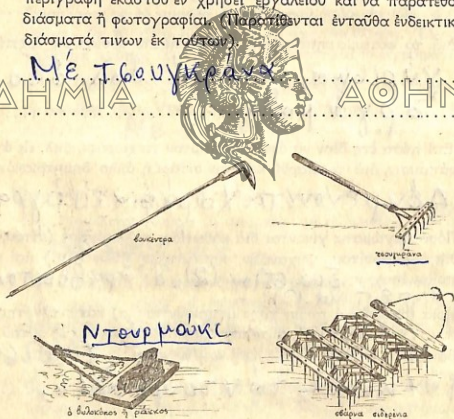 περιγραφὴ ἑκάστου ἐν χρήσει ἐργαλείου καὶ νὰ παρατεθο
διάσματα ἢ φωτογραφίαι. (Παρατίθενται ἐνταῦθα ἐνδεικτικ
διάσματά τινων ἐκ τούτων).
Μέ τσουγκράνα.
ΔΗΜΙΑ ΑΘΗΝ
βουκέντρα
τσουγκράνα
Ντουρμούκι
ὁ βωλοκόπος ἢ
σβάρνα σιδερένια